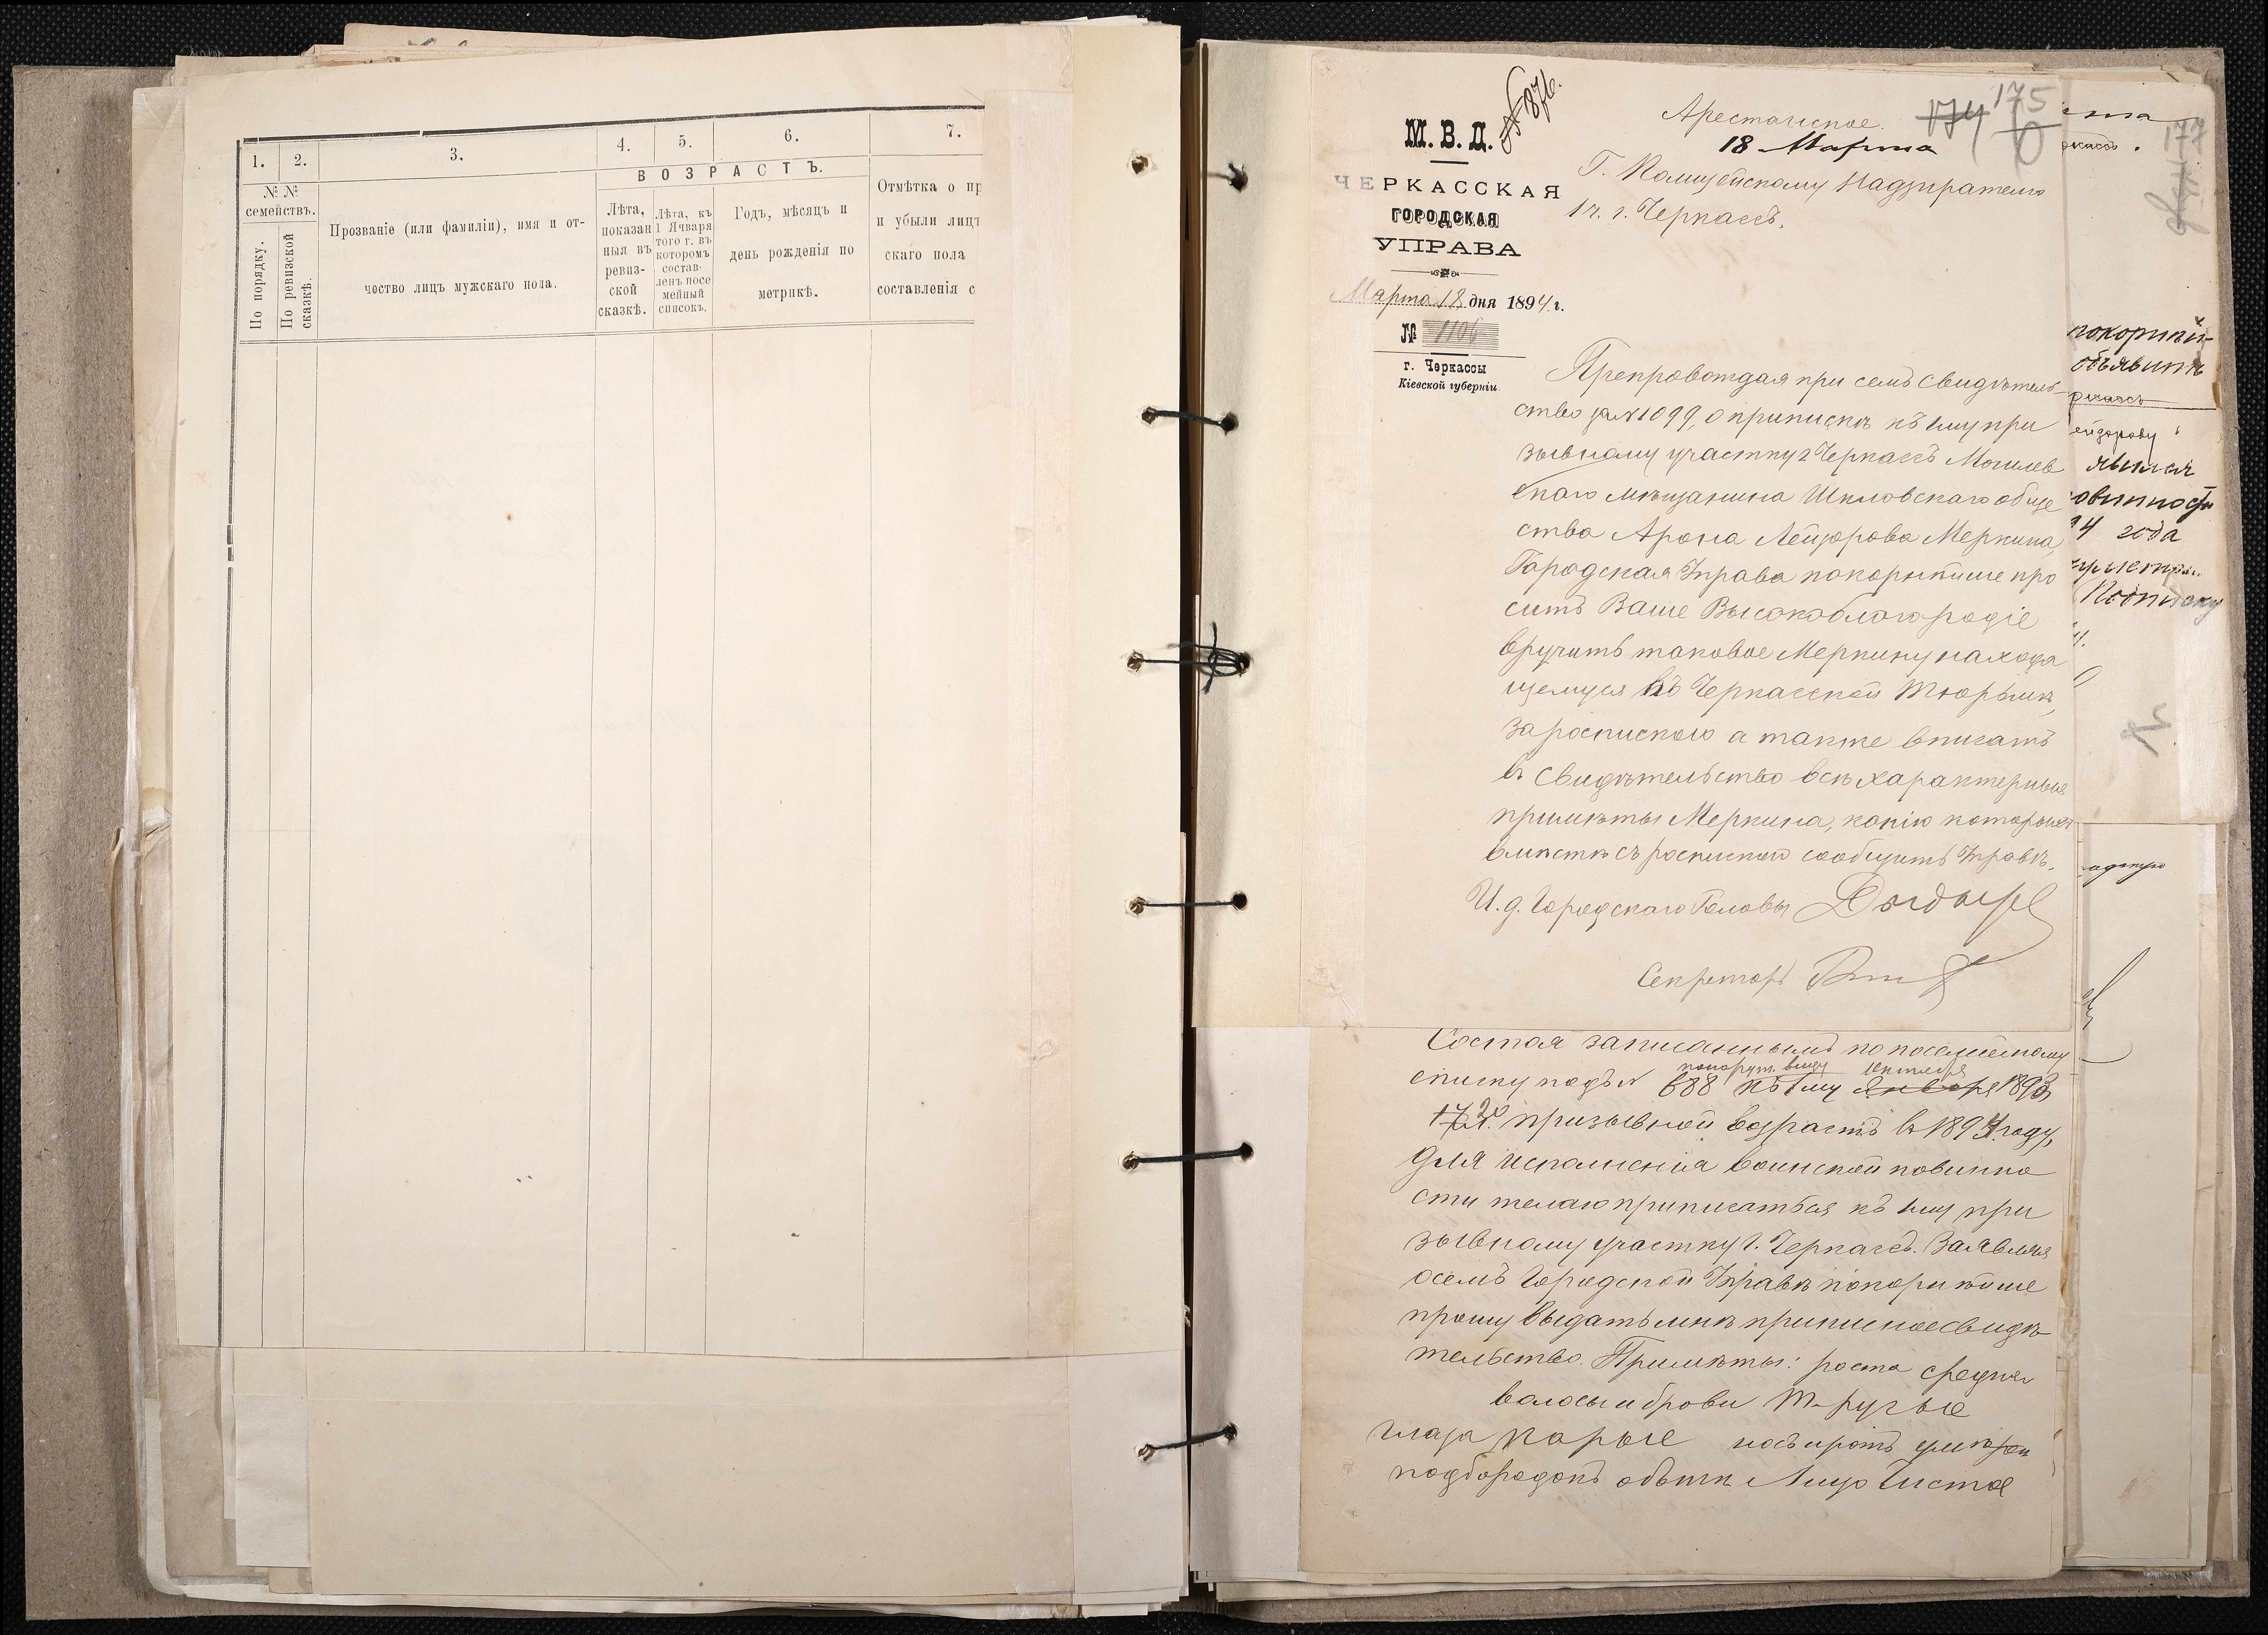 1.
2.
3.
4.
5.
6.
7.
№ №
семействъ.
По порядку.
По ревизской
сказкѣ.
Прозваніе (или фамиліи), имя и от-
чество лицъ мужскаго пола.
ВОЗРАСТЪ.
Лѣта,
показан
ныя въ
ревиз-
ской
сказкѣ.
Лѣта, къ
1 Января
того г. въ
которомъ
состав-
ленъ посе
мейный
списокъ.
Годъ, мѣсяцъ и
день рожденія по
метрикѣ.
Отмѣтка о пр
и убыли лицъ
скаго пола
составленія с
№ 876.
М. В. Д.
ЧЕРКАССКАЯ
ГОРОДСКАЯ
УПРАВА
Марта 18 дня 1894 г.
№ 1106
г. Черкассы
Кіевской губерніи
Арестанское.
174 175
18 Марта
Г. Полицейскому Надзирателю
1 ч. г. Черкассъ.
Препровождая при семъ свидѣтель
ство за № 1099, о припискѣ къ 1му при
зывному участку г Черкассъ Могилев
скаго мѣщанина Шкловскаго обще
ства Арона Лейзорова Меркина,
Городская Управа покорнѣйше про
ситъ Ваше Высокоблагородіе
вручить таковое Меркину находя
щемуся въ Черкасской тюрьмѣ,
за роспискою а также вписать
въ свидѣтельство всѣ характерныя
примѣты Меркина, копію которыхъ
вмѣстѣ съ роспиской сообщить Управѣ.
И. д. Городскаго Головы
Секретарь
Состоя записаннымъ по посемейному
списку подъ № 688 къ 1му Января 1893
призывной возрастъ въ 1894 году,
для исполненія воинской повинно
сти желаю приписаться къ 1му при
зывному участку г. Черкассъ. Заявляя
о семъ Городской Управѣ покорнѣйше
прошу выдать мнѣ приписное свидѣ
тельство. Примѣты: роста средня
волосы и брови т-русые
глаза карые носъ и ротъ умѣрен
подбородокъ обыкн Лицо Чистое
177
покорнѣй-
объявить
явился
овинности
94 года
Подписку